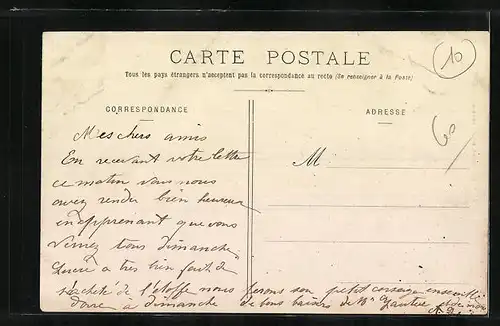 CARTE POSTALE
Tous les pays étrangers n'acceptent pas la correspondance au recto (Se renseigner à la Poste)
10
CORRESPONDANCE
ADRESSE
60
Mes chers amis
En recevant votre lettre
ce matin vous nous
avez rendu bien heureux
en apprenant que vous
venez tous dimanche
Lucie a très bien fait de
l'étoffe nous ferons son petit corsage ensemble
donc à dimanche de bons baisers de
M